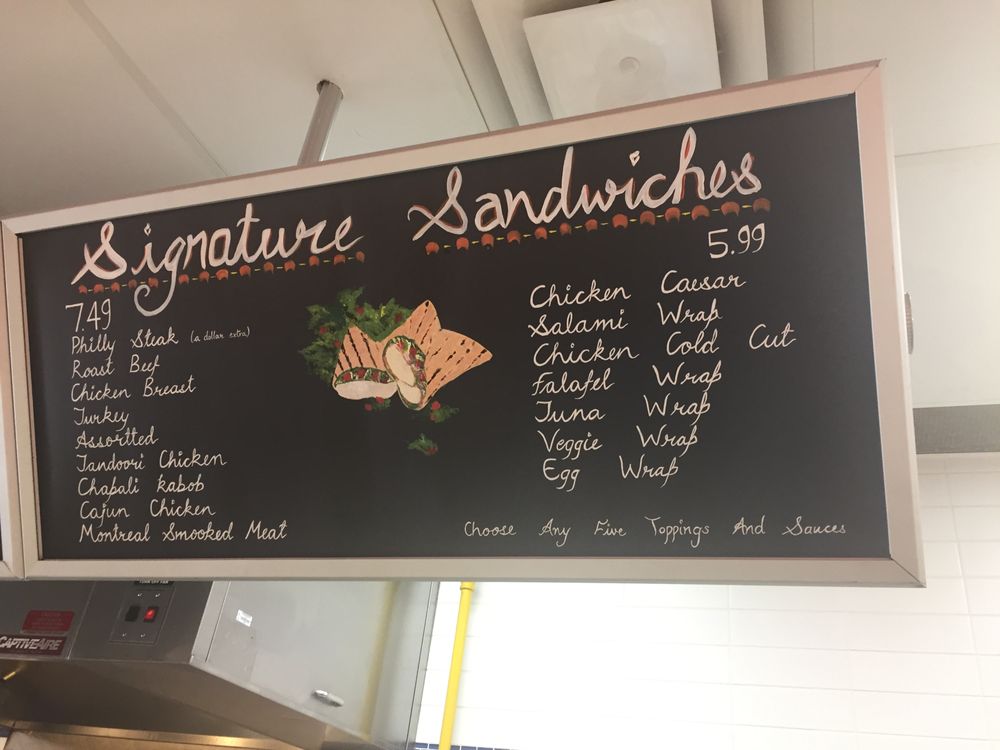 Signature Sandwiches
7.49
Philly Steak (a dollar extra)
Roast Beef
Chicken Breast
Turkey
Assortted
Tandoori Chicken
Chapali kabob
Cajun Chicken
Montreal Smooked Meat
5.99
Chicken Caesar
Salami Wrap
Chicken Cold Cut
Falafel Wrap
Tuna Wrap
Veggie Wrap
Egg Wrap
Choose Any Five Toppings And Sauces
CAPTIVEAIRE